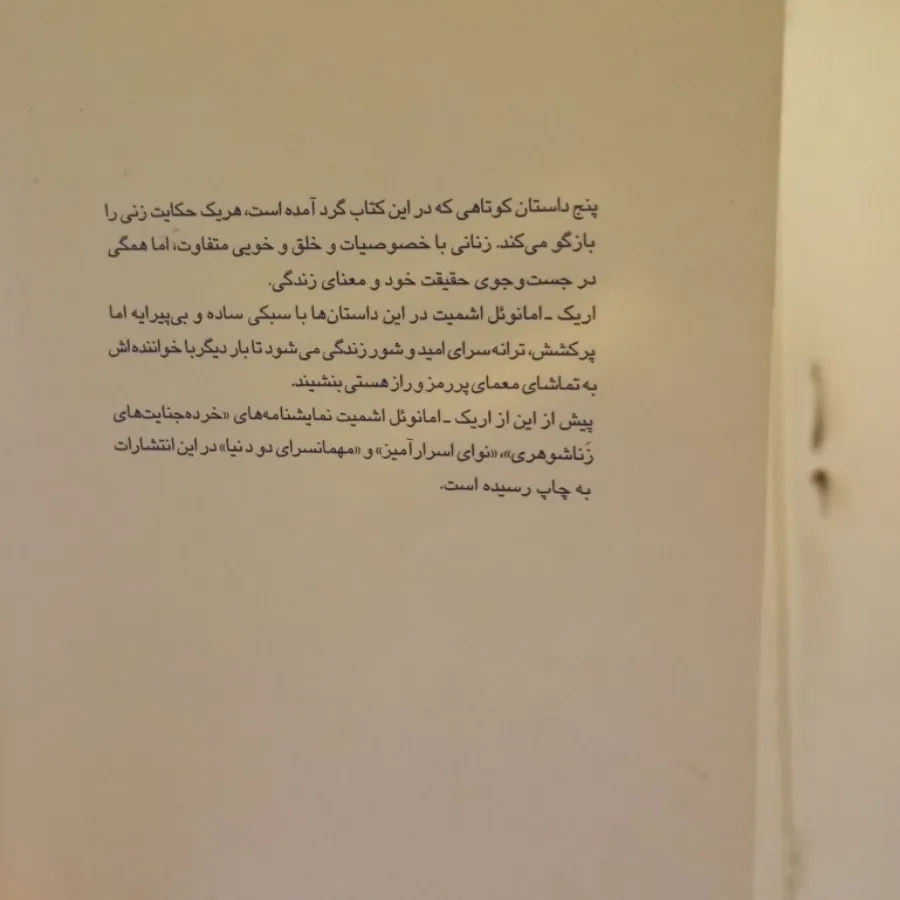 پنج داستان کوتاهی که در این کتاب گرد آمده است، هریک حکایت زنی را
بازگو می‌کند. زنانی با خصوصیات و خلق و خویی متفاوت، اما همگی
در جست‌وجوی حقیقت خود و معنای زندگی.
اریک ـ امانوئل اشمیت در این داستان‌ها با سبکی ساده و بی‌پیرایه اما
پرکشش، ترانه‌سرای امید و شور زندگی می‌شود تا بار دیگر با خواننده‌اش
به تماشای معمای پررمز و راز هستی بنشیند.
پیش از این از اریک ـ امانوئل اشمیت نمایشنامه‌های «خرده‌جنایت‌های
زناشوهری»، «نوای اسرارآمیز» و «مهمانسرای دو دنیا» در این انتشارات
به چاپ رسیده است.